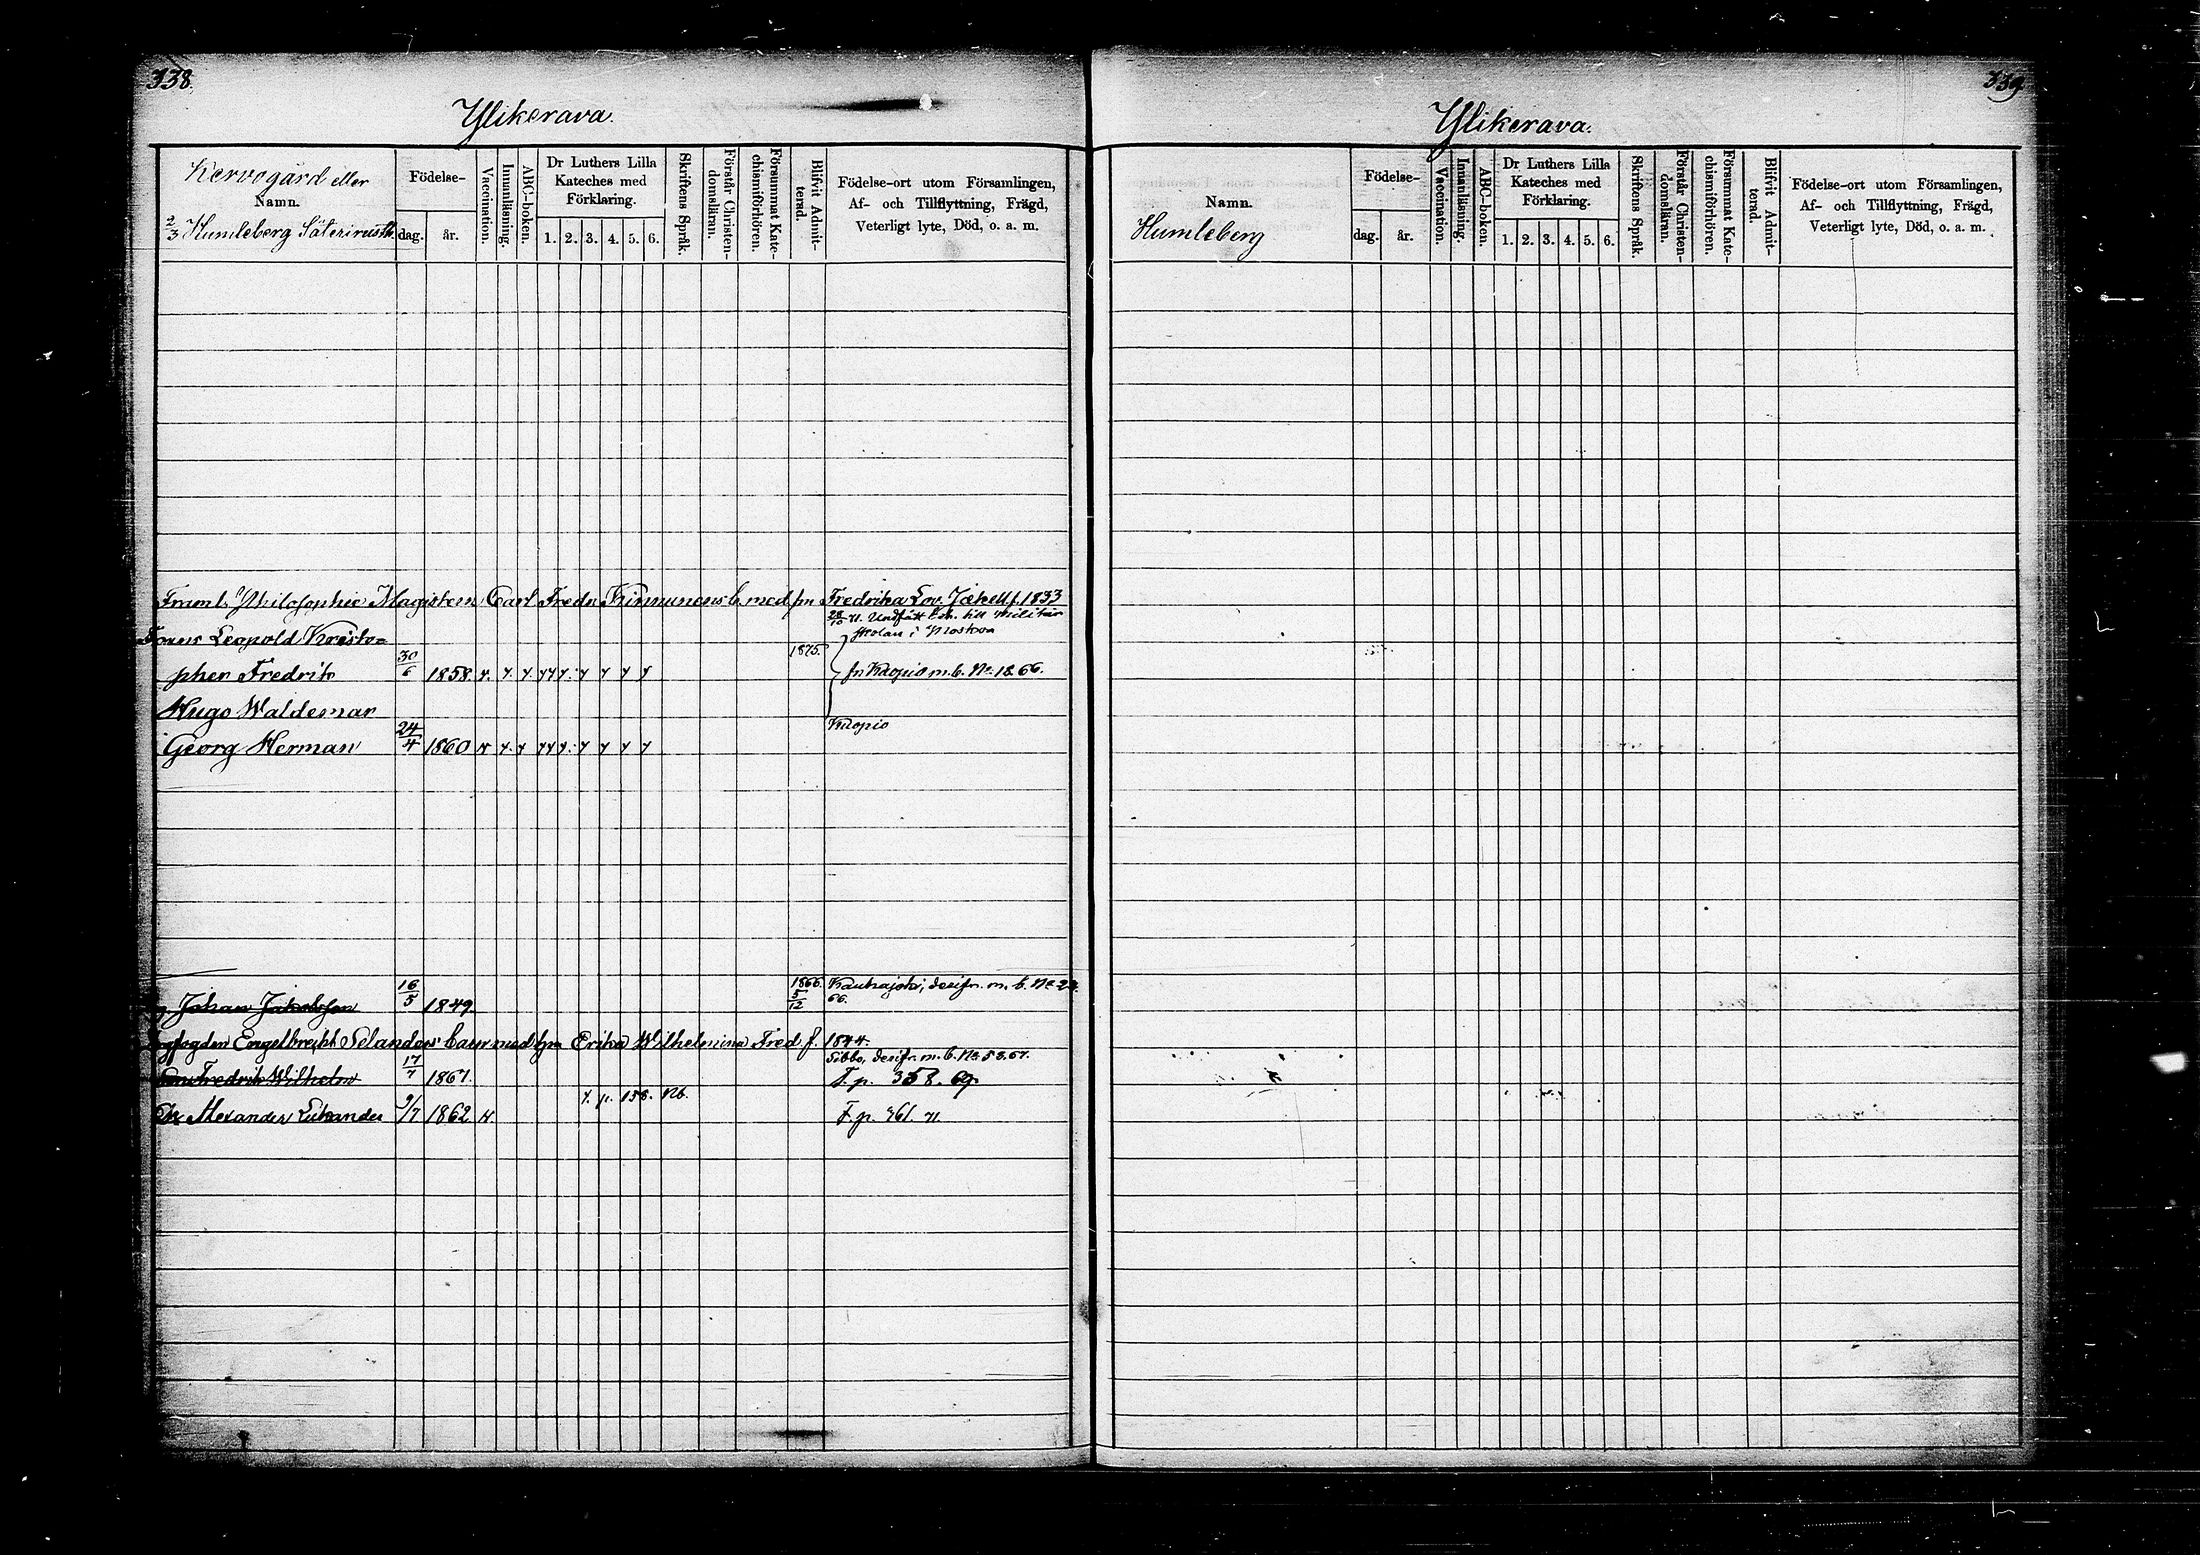 338.
Ylikerava.
Kervogård eller
Namn.
2/3 Humleberg Säteri
Födelse-
dag. år.
Vaccination.
Innanläsning.
ABC-boken.
Dr Luthers Lilla
Kateches med
Förklaring.
1. 2. 3. 4. 5. 6.
Skriftens Språk.
Förstår Christen-
domsläran.
Försummat Kate-
chismiförhören.
Blifvit Admit-
terad.
Födelse-ort utom Församlingen,
Af- och Tillflyttning, Frägd,
Veterligt lyte, Död, o. a. m.
Philosophie Magistern Carl Fredr. Kinnunens b. med fru Fredrika Lov. f. 1833
Undfått till Militär
skolan i Moskva
Frans Leopold Kristo-
1875.
pher Fredrik 30/6 1858 fr. Kuopio m. b. No. 18. 66.
Hugo Waldemar
Kuopio
Georg Herman 24/4 1860
Johan Jakobsson 16/5 1849. 1866. 5/12 Kauhajoki, derifr. m. b. No.
66.
Engelbrecht Selanders barn med hu Erika Wilhelmina Fred. f. 1844.
Sibbo, derifr. m. b. No. 58. 67.
Fredrik Wilhelm 17/7 1867. T. p. 358. 69.
p. 158. Nb.
Alexander 9/7 1862 T. p. 361. 71.
339
Ylikerava.
Namn.
Humleberg
Födelse-
dag. år.
Vaccination.
Innanläsning.
ABC-boken.
Dr Luthers Lilla
Kateches med
Förklaring.
1. 2. 3. 4. 5. 6.
Skriftens Språk.
Förstår Christen-
domsläran.
Försummat Kate-
chismiförhören.
Blifvit Admit-
terad.
Födelse-ort utom Församlingen,
Af- och Tillflyttning, Frägd,
Veterligt lyte, Död, o. a. m.